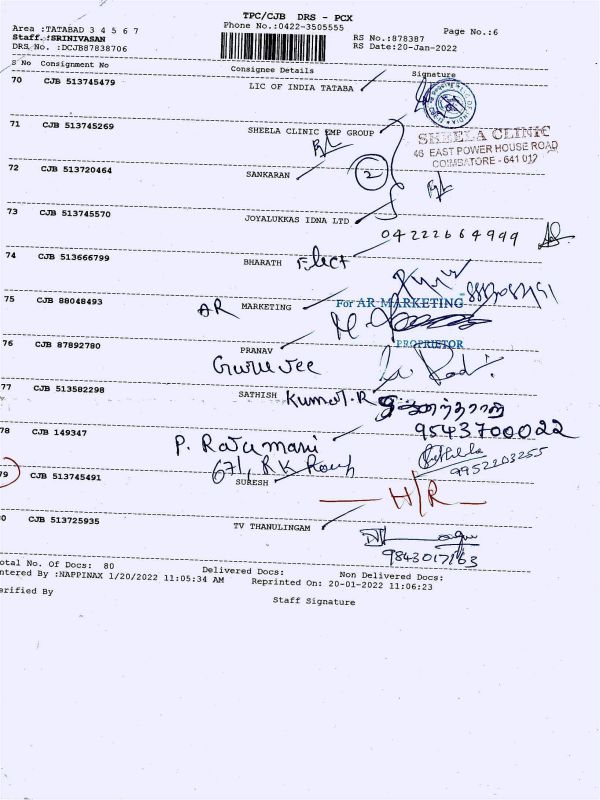 TPC/CJB DRS - PCX
Area :TATABAD 3 4 5 6 7
Phone No.:0422-3505555
Page No.:6
Staff :SRINIVASAN
RS No.:878387
DRS No. :DCJB87838706
RS Date:20-Jan-2022
S No Consignment No Consignee Details Signature
70 CJB 513745479 LIC OF INDIA TATABA
71 CJB 513745269 SHEELA CLINIC EMP GROUP
SHEELA CLINIC
46 EAST POWER HOUSE ROAD
COIMBATORE - 641 012
72 CJB 513720464 SANKARAN
2
73 CJB 513745570 JOYALUKKAS IDNA LTD
04222664999
74 CJB 513666799 BHARATH Elect
75 CJB 88048493 AR MARKETING
For AR MARKETING
PROPRIETOR
76 CJB 87892780 PRANAV
Guruvee
77 CJB 513582298 SATHISH Kumar.R
9543700022
78 CJB 149347 P. Rajamani
671, R K
9952203255
79 CJB 513745491 SURESH
H/R
80 CJB 513725935 TV THANULINGAM
9843017163
Total No. Of Docs: 80 Delivered Docs: Non Delivered Docs:
ntered By :NAPPINAX 1/20/2022 11:05:34 AM Reprinted On: 20-01-2022 11:06:23
erified By
Staff Signature